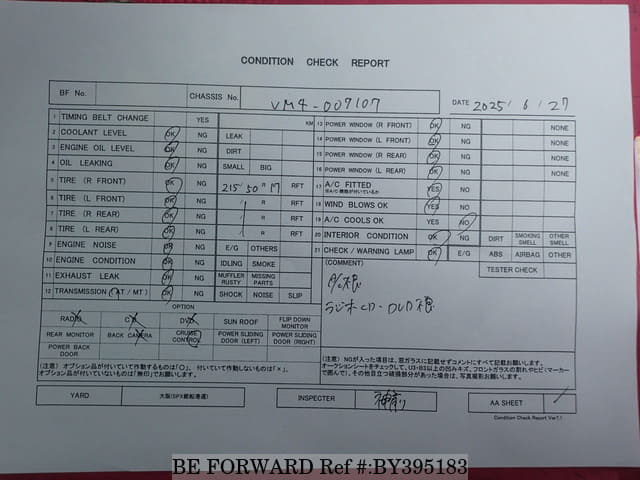 CONDITION CHECK REPORT
BF No.
CHASSIS No. VM4-007107
DATE 2025/ 6/ 27
1 TIMING BELT CHANGE YES KM
2 COOLANT LEVEL OK NG LEAK
3 ENGINE OIL LEVEL OK NG DIRT
4 OIL LEAKING OK NG SMALL BIG
5 TIRE (R FRONT) OK NG 215/50 R 17 RFT
6 TIRE (L FRONT) OK NG / R RFT
7 TIRE (R REAR) OK NG / R RFT
8 TIRE (L REAR) OK NG / R RFT
9 ENGINE NOISE OK NG E/G OTHERS
10 ENGINE CONDITION OK NG IDLING SMOKE
11 EXHAUST LEAK OK NG MUFFLER RUSTY MISSING PARTS
12 TRANSMISSION (AT / MT) OK NG SHOCK NOISE SLIP
13 POWER WINDOW (R FRONT) OK NG NONE
14 POWER WINDOW (L FRONT) OK NG NONE
15 POWER WINDOW (R REAR) OK NG NONE
16 POWER WINDOW (L REAR) OK NG NONE
17 A/C FITTED YES NO
※A/C機能が付いているか
18 WIND BLOWS OK YES NO
19 A/C COOLS OK YES NO
20 INTERIOR CONDITION OK NG DIRT SMOKING SMELL OTHER SMELL
21 CHECK / WARNING LAMP OK E/G ABS AIRBAG OTHER
(COMMENT)
TESTER CHECK
ラジオCD-DVD
OPTION
RADIO CD DVD SUN ROOF FLIP DOWN MONITOR
REAR MONITOR BACK CAMERA CRUISE CONTROL POWER SLIDING DOOR (LEFT) POWER SLIDING DOOR (RIGHT)
POWER BACK DOOR
(注意) オプション品が付いていて作動するものは「○」、付いていて作動しないものは「×」、
オプション品が付いていないものは「無印」でお願いします。
(注意) NGが入った項目は、窓ガラスに記載せずコメントにすべて記載お願いします。
オークションシートをチェックして、U3・B3以上の凹みキズ、フロントガラスの割れやヒビ(マーカー
で囲んで)、その他目立つ破損部分があった場合は、写真撮影お願いします。
YARD 大阪(SPX姫船港運)
INSPECTER
AA SHEET
Condition Check Report Ver7.1
BE FORWARD Ref #:BY395183